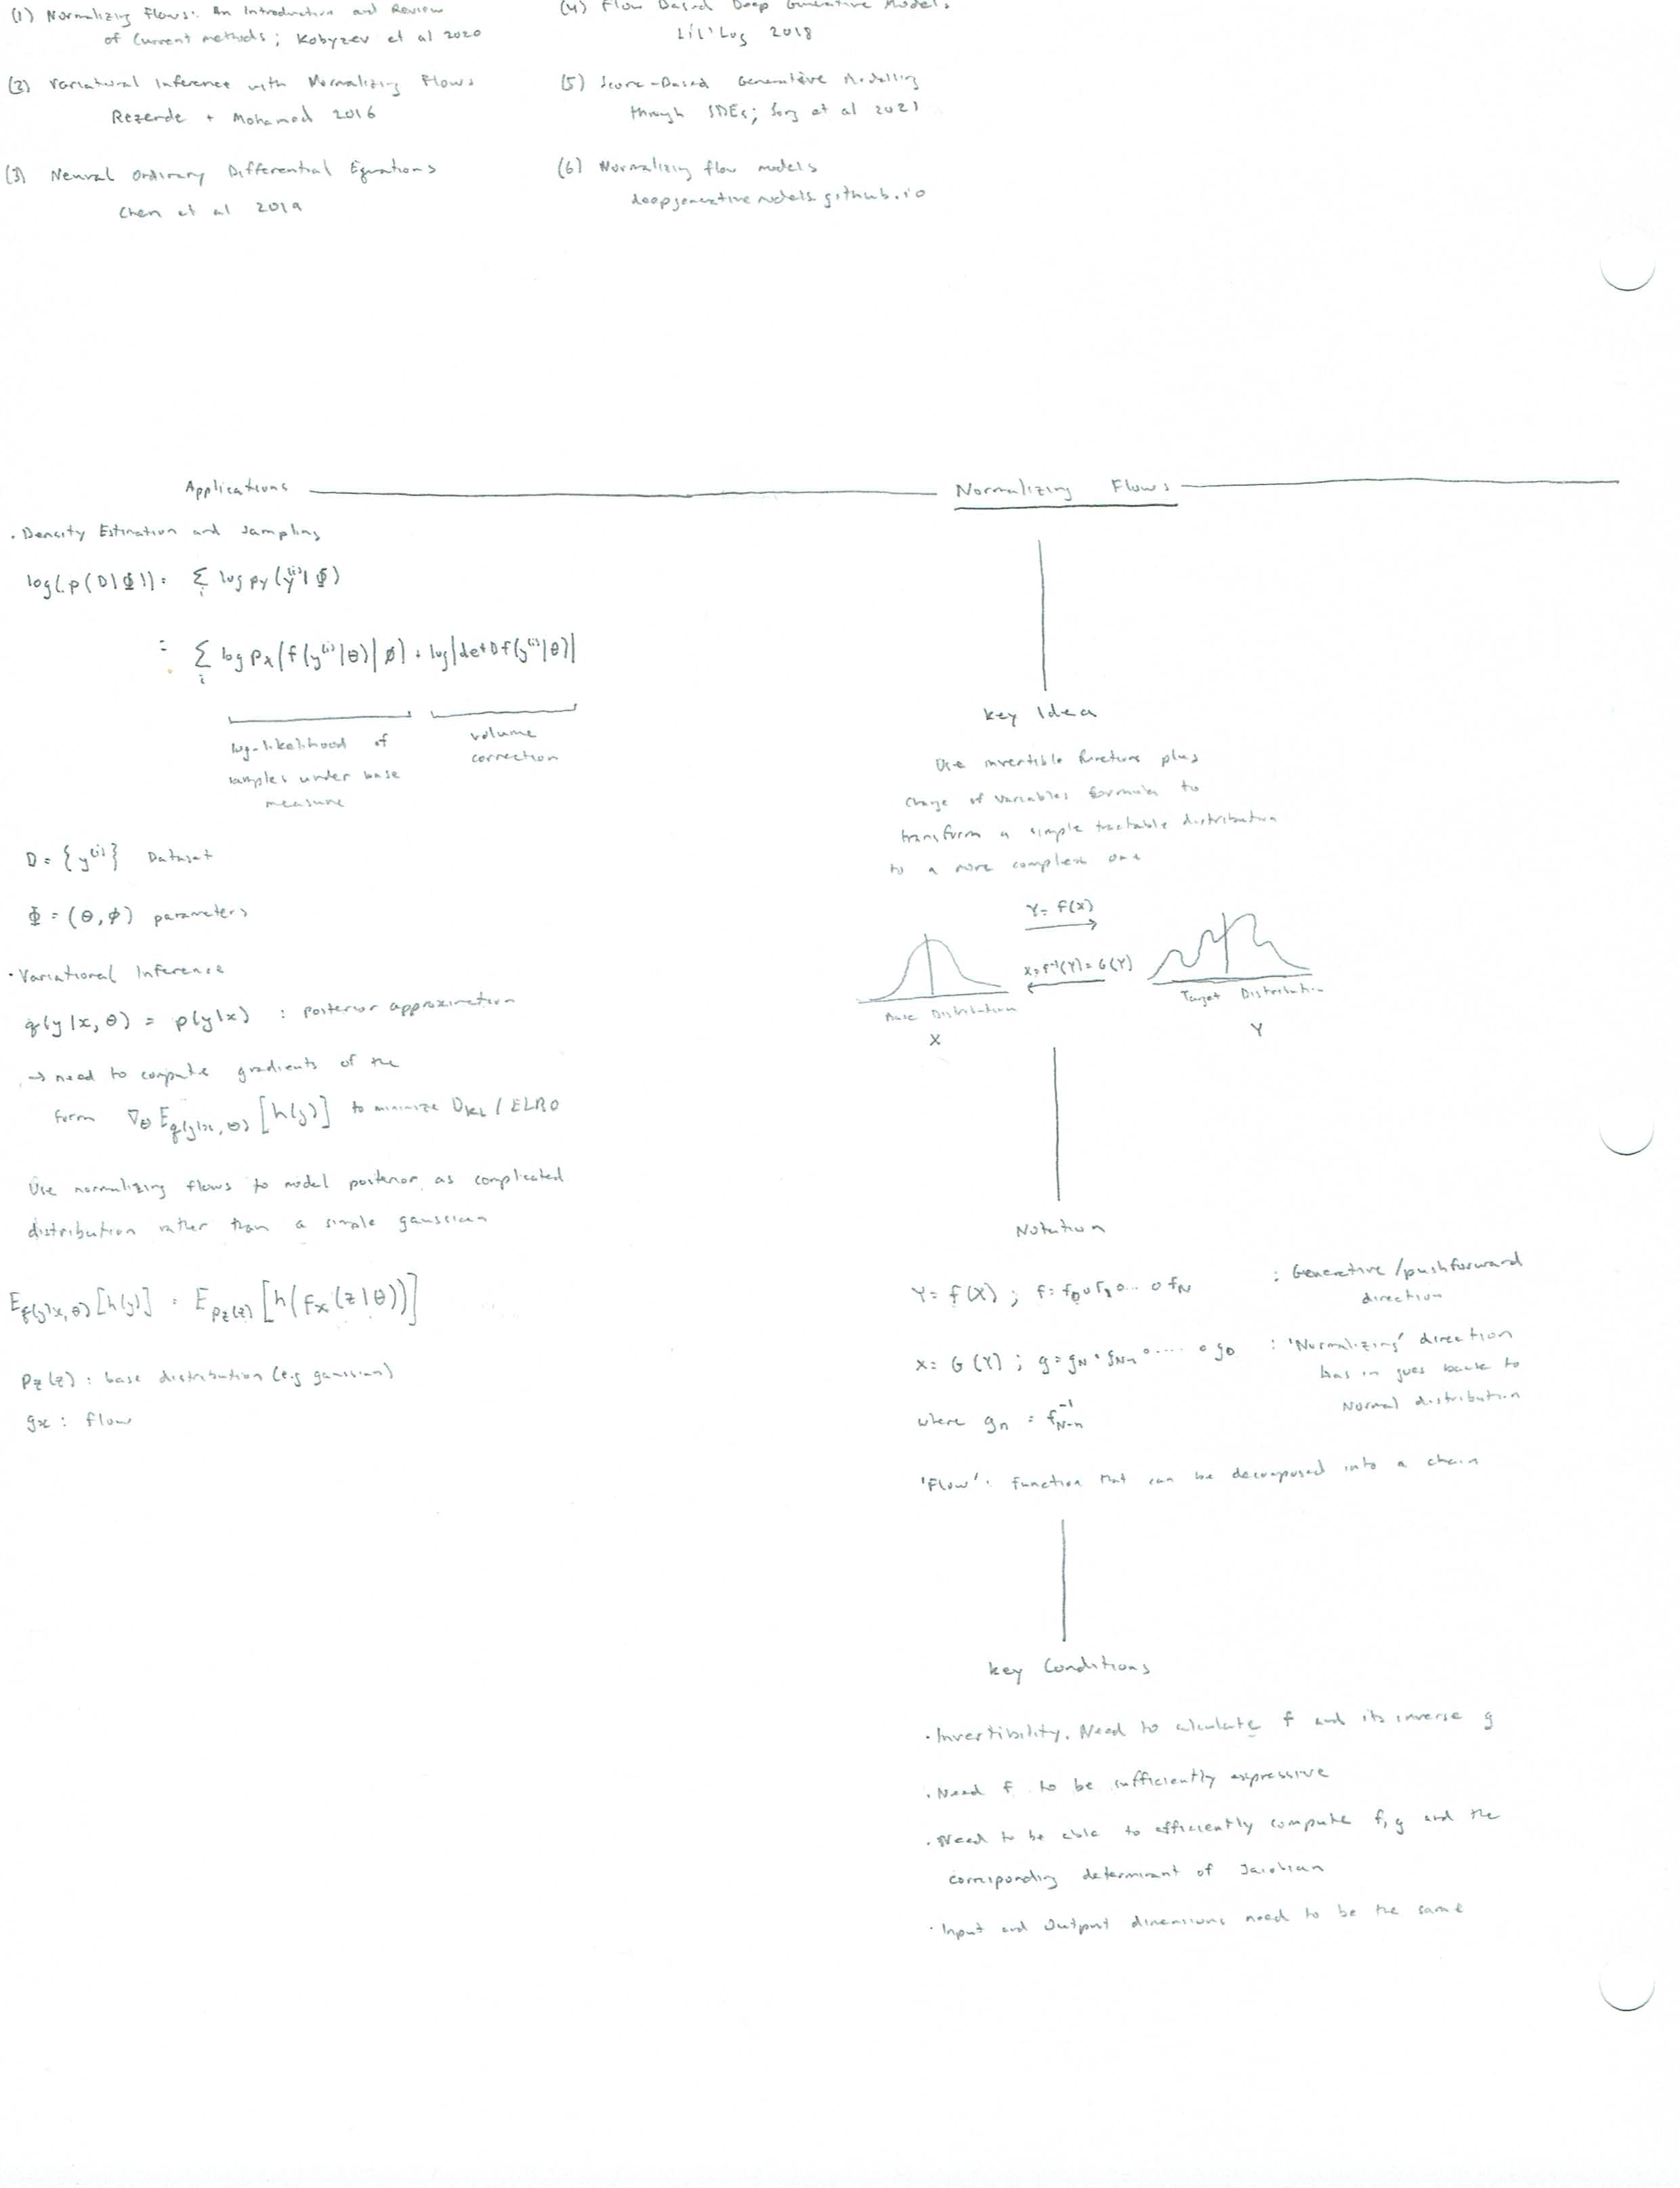 (1) Normalizing Flows: An Introduction and Review
of Current methods; Kobyzev et al 2020
(2) Variational Inference with Normalizing Flows
Rezende + Mohamed 2016
(3) Neural Ordinary Differential Equations
Chen et al 2019
(4) Flow Based Deep Generative Models
Lil'Log 2018
(5) Score-Based Generative Modelling
through SDEs; Song et al 2021
(6) Normalizing flow models
deepgenerativemodels.github.io
Applications
Normalizing Flows
· Density Estimation and Sampling
log(p(D|Φ)) = Σ_i log p_Y(y^(i)|Φ)
= Σ_i log p_x(f(y^(i)|θ)|ϕ) + log|det Df(y^(i)|θ)|
log-likelihood of
samples under base
measure
volume
correction
D = {y^(i)} Dataset
Φ = (θ, ϕ) parameters
· Variational Inference
q(y|x, θ) = p(y|x) : posterior approximation
→ need to compute gradients of the
form ∇_θ E_q(y|x, θ) [h(y)] to minimize D_KL / ELBO
Use normalizing flows to model posterior as complicated
distribution rather than a simple gaussian
E_q(y|x, θ) [h(y)] = E_p_z(z) [h(f_x(z|θ))]
p_z(z) : base distribution (e.g gaussian)
g_x : flow
Key Idea
Use invertible functions plus
change of variables formula to
transform a simple tractable distribution
to a more complex one
Y = f(X)
X = f^-1(Y) = G(Y)
Base Distribution
X
Target Distribution
Y
Notation
Y = f(X) ; f = f_0 ∘ f_1 ∘ ... ∘ f_N : Generative/pushforward
direction
X = G(Y) ; g = g_N ∘ g_N-1 ∘ .... ∘ g_0 : 'Normalizing' direction
bas in goes back to
Normal distribution
where g_n = f^-1_N-n
'Flow': function that can be decomposed into a chain
Key Conditions
· Invertibility. Need to calculate f and its inverse g
· Need f to be sufficiently expressive
· Need to be able to efficiently compute f, g and the
corresponding determinant of Jacobian
· Input and Output dimensions need to be the same